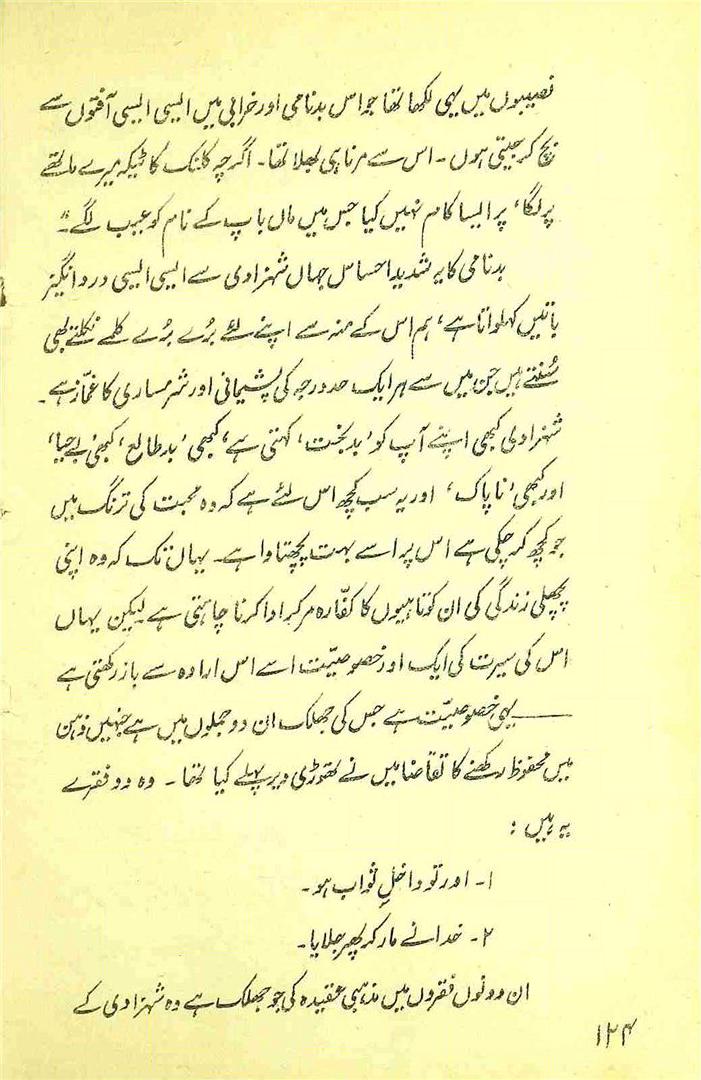 نصیبوں میں یہی لکھا تھا جو اس بدنامی اور خرابی میں ایسی ایسی آفتوں سے
بچ کر جیتی ہوں۔ اس سے مرنا ہی بھلا تھا۔ اگرچہ کلنک کا ٹیکہ میرے ماتھے
پر لگا، پر ایسا کام نہیں کیا جس میں ماں باپ کے نام کو عیب لگے۔"
بدنامی کا یہ شدید احساس جہاں شہزادی سے ایسی ایسی درد انگیز
باتیں کہلواتا ہے، ہم اس کے منہ سے اپنے لئے بُرے بُرے کلمے نکلتے بھی
سُنتے ہیں جن میں سے ہر ایک حد درجہ کی پشیمانی اور شرمساری کا غمّاز ہے۔
شہزادی کبھی اپنے آپ کو 'بدبخت' کہتی ہے، کبھی 'بد طالع'، کبھی 'بے حیا'
اور کبھی 'ناپاک' اور یہ سب کچھ اس لئے ہے کہ وہ محبت کی ترنگ میں
جو کچھ کر چکی ہے اس پر اسے بہت پچھتاوا ہے۔ یہاں تک کہ وہ اپنی
پچھلی زندگی کی ان کوتاہیوں کا کفّارہ مر کر ادا کرنا چاہتی ہے لیکن یہاں
اس کی سیرت کی ایک اور خصوصیّت اسے اس ارادہ سے باز رکھتی ہے
——یہی خصوصیّت ہے جس کی جھلک ان دو جملوں میں ہے جنہیں ذہن
میں محفوظ رکھنے کا تقاضا میں نے تھوڑی دیر پہلے کیا تھا۔ وہ دو فقرے
یہ ہیں :
۱۔ اور تو داخلِ ثواب ہو۔
۲۔ خدا نے مار کر پھر جلایا۔
ان دونوں فقروں میں مذہبی عقیدہ کی جو جھلک ہے وہ شہزادی کے
۱۲۴